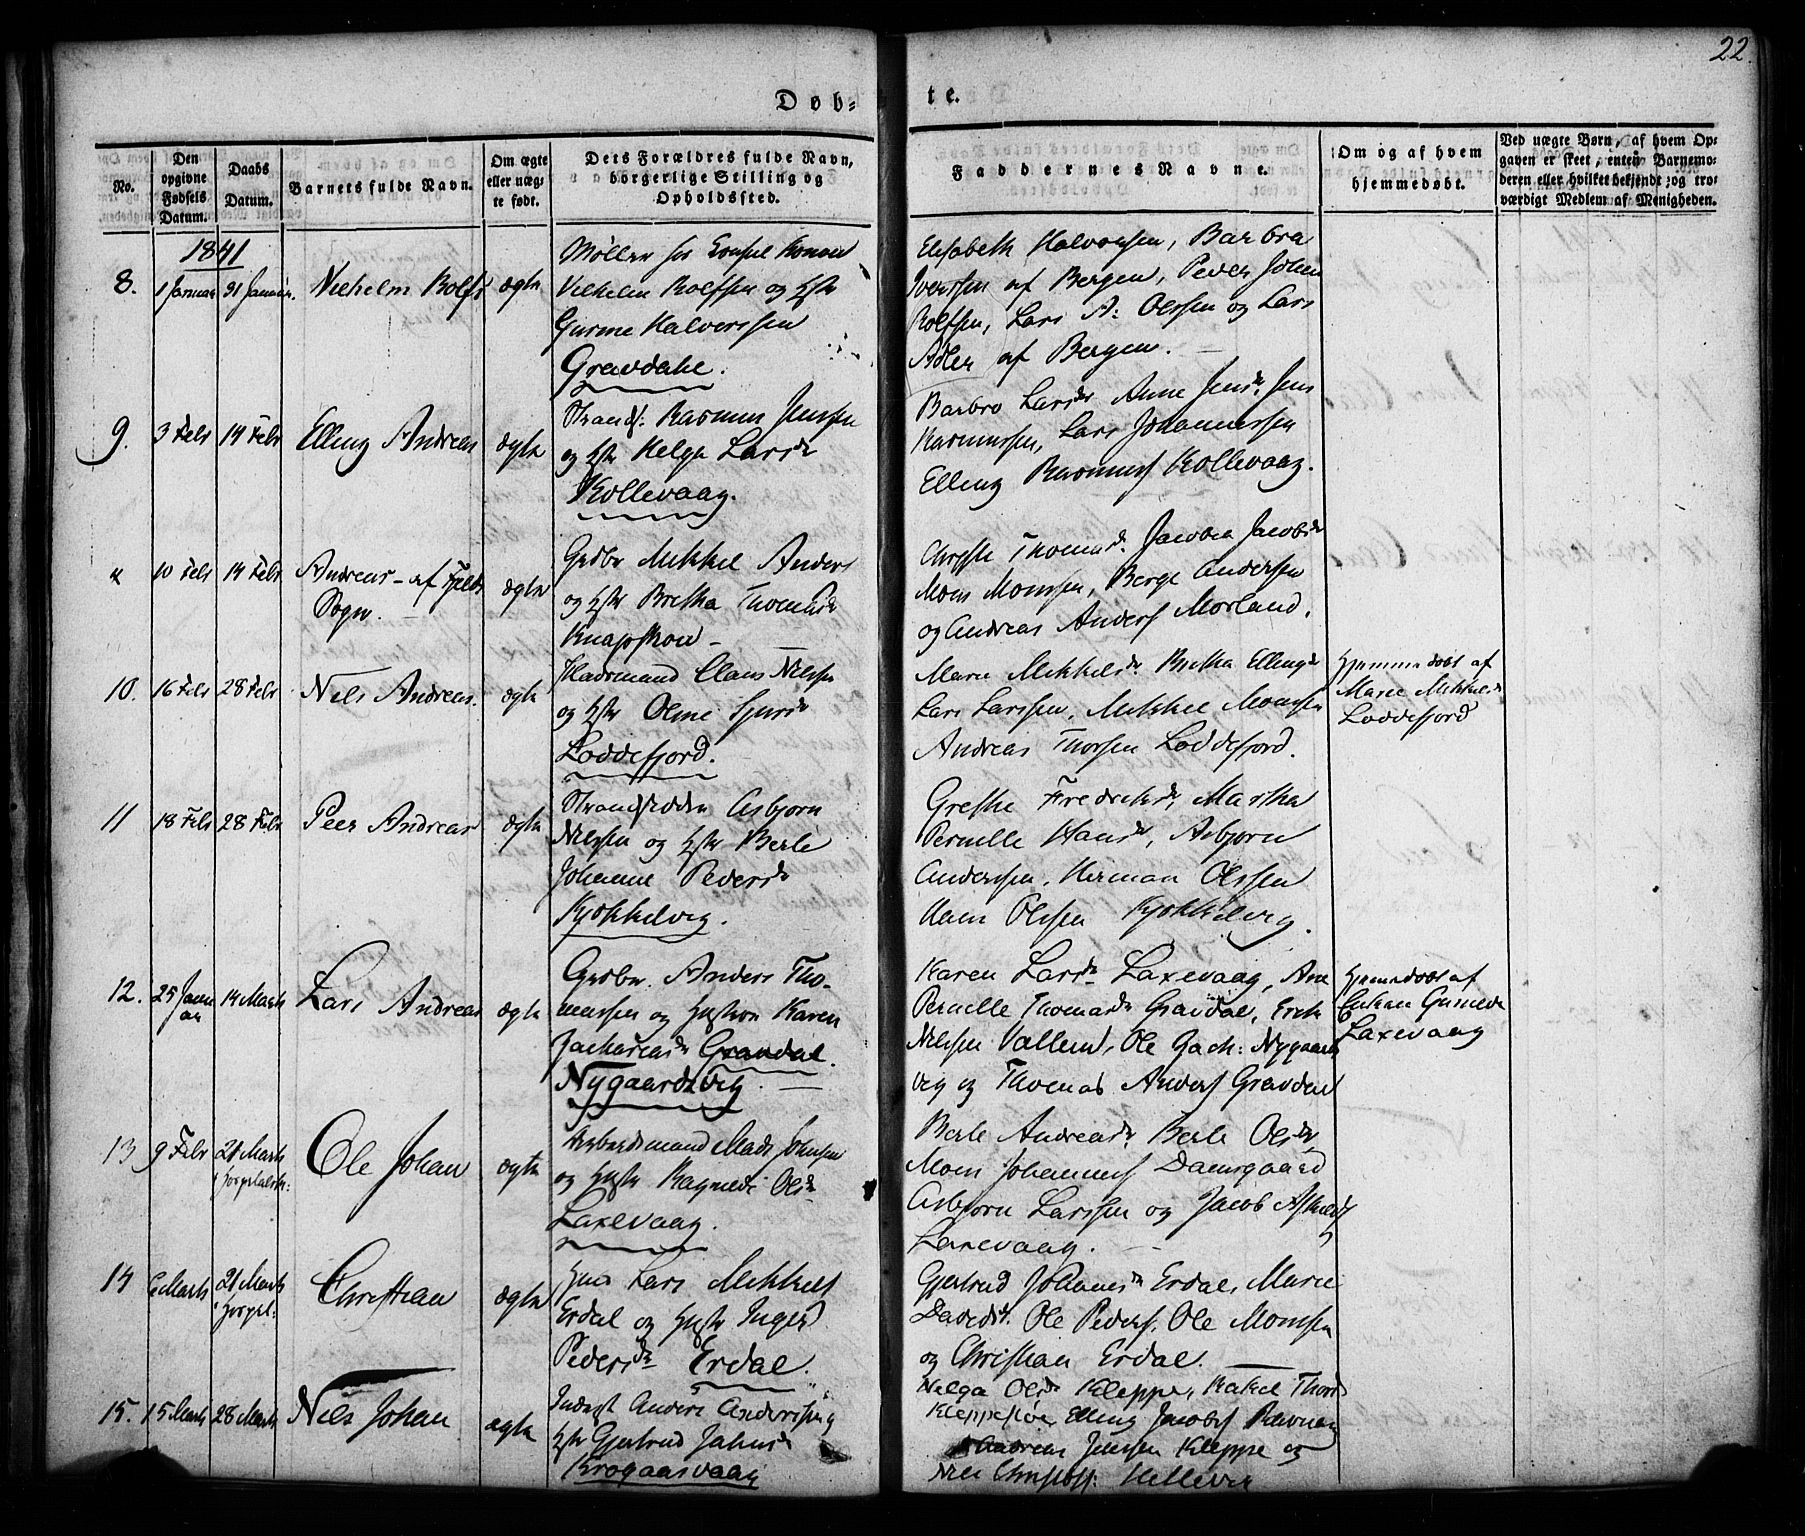 22.
Døb-
te.
No.
Den opgivne Fødsels Datum.
Daabs Datum.
Barnets fulde Navn.
Om ægte eller uægte født.
Dets Forældres fulde Navn, borgerlige Stilling og Opholdssted.
Faddernes Navne.
Om og af hvem hjemmedøbt.
Ved uægte Børn, af hvem Opgaven er skeet, enten Barnemoderen eller hvilket bekjendt og troværdigt Medlem af Menigheden.
1841
8.
1 Januar
31 Januar.
Vilhelm Rolfs
ægte
Møller hos Consul Konow
Vilhelm Rolfsen og Hst
Gurine Halvorssen
Gravdahl.
Elisabeth Halvorssen, Barbra
Iverssen af Bergen, Peder Johan
Rolfsen, Lars A: Olssen og Lars
Adler af Bergen.
9.
3 Febr
14 Febr
Elling Andreas
ægte
Strands: Rasmus Jenssen
og Hstr Helga Larsdr
Kollevaag.
Barbro Larsdr Anne Jensdr Jens
Rasmussen, Lars Johannessen
Elling Rasmuss Kollevaag.
10 Febr
14 Febr
Andreas - af Fjelds
Sogn.
ægte
Grdbr Mikkel Anders
og Hstr Britha Thomasdr
Knapskou
Thomasdr. Jacobea Jacobsdr
Mons Monssen, Berge Anderssen
og Andreas Anderss Morland.
10.
16 Febr
28 Febr
Nils Andreas.
ægte
Huusmand Claus Nilssen
og Hstr Oline Sjursdr
Loddefjord.
Marie Mikkelsdr Britha Ellingsdr
Lars Larssen, Mikkel Monssen
Andreas Thorsen Loddefjord.
Hjemmedøbt af
Marie Mikkelsdr
Loddefjord
11
18 Febr
28 Febr
Peer Andreas
ægte
Strandsidder Asbjørn
Nilssen og Hstr Berle
Johanne Pedersdr
Kjøkkelvig.
Grethe Fredriksdr, Martha
Pernille Hansdr, Asbjørn
Anderssen, Herman Olssen
Hans Olssen Kjøkkelvig.
12.
25 Janu
ar
14 Marts
Lars Andreas
ægte
Grdbr. Anders Tho-
massen og Hustrue Karen
Zachariasdr Gravdal.
Nygaardsvig.
Karen Larsdr Laxevaag, Ane
Pernille Thomasdr Gravdal, Erik
Nilssen Vallem, Ole Zach: Nygaards
vig og Thomas Anderss Gravdal
Hjemmedøbt af
Enken Gunilde
Laxevaag
13
9 Febr
21 Marts
i Hospitalsk:
Ole Johan
ægte
Arbeidsmand Mads Johnsen
og Hustr Ragnilde Olsdr
Laxevaag.
Berle Andreasdr. Berle Olsdr
Mons Johanness Damsgaard
Asbjørn Larssen og Jacob
Laxevaag.
14
6 Marts
21 Marts
i Hospit.
Christian
ægte
Lars Mikkels
Erdal og Hustr Inger
Pedersdr Erdal.
Gjertrud Johannesdr Erdal, Marie
Davidsdr. Ole Peders, Ole Monssen
og Christian Erdal.
15.
15 Marts
28 Marts
Nils Johan
ægte
Inderst Anders Anderssen og
Hstr Gjertrud
Krogaasvaag
Helga Olsdr Kleppe, Rakel Thords
Kleppestøe Elling Jacobss Ravnang
Andreas Jenssen Kleppe og
Nils Christoff: Hillevig